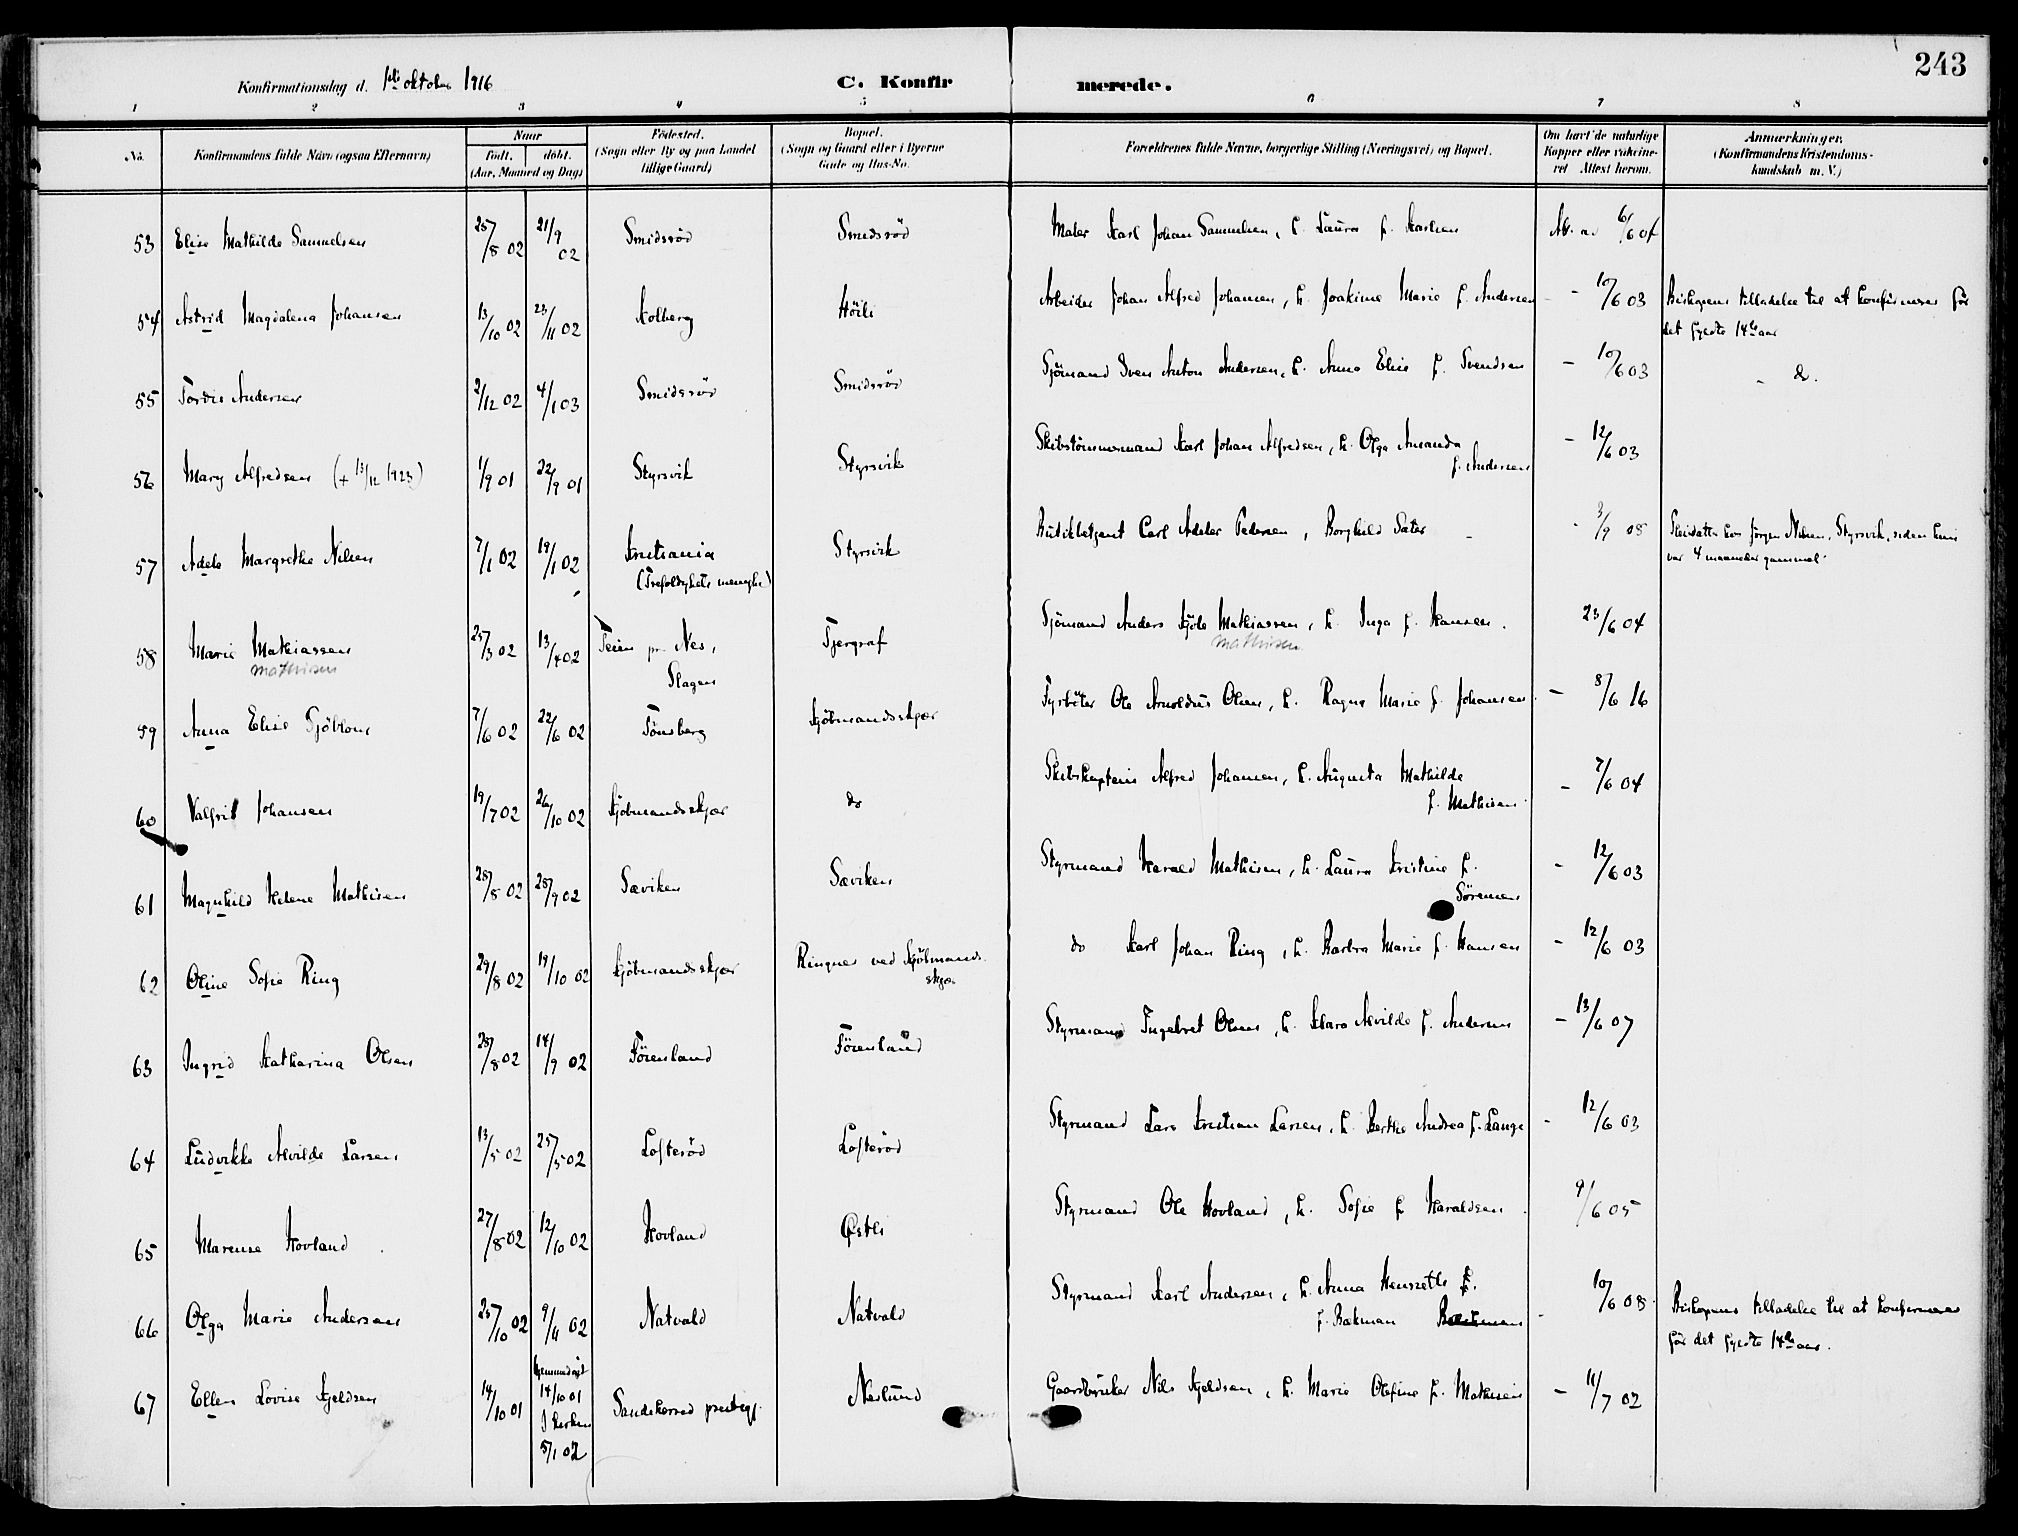 243
Konfirmationsdag d. 1ste oktober 1916 C. Konfirmerede.
1 2 3 4 5 6 7 8
No. Konfirmandens fulde Navn (ogsaa Efternavn) Naar födt. döbt. (Aar, Maaned og Dag) Födested. (Sogn eller By og paa Landet tillige Gaard) Bopæl. (Sogn og Gaard eller i Byerne Gade og Hus-No. Forældrenes fulde Navne, borgerlige Stilling (Næringsvei) og Bopæl. Om havt de naturlige Kopper eller vakcineret Attest herom. Anmærkninger. (Konfirmandens Kristendomskundskab m. V.)
53 Elise Mathilde Samuelsen 25/8 02 21/9 02 Smidsröd Smidsröd Maler Karl Johan Samuelsen, h. Laura f. Karlsen At. av 6/6 04
54 Astrid Magdalena Johansen 13/10 02 23/11 02 Kolberg Höili Arbeider Johan Alfred Johansen, h. Joakime Marie f. Andersen - 10/6 03 Biskopens tilladelse til at konfirmeres för
det fyldte 14de aar
55 Tordis Andersen 2/12 02 4/1 03 Smidsröd Smidsröd Sjömand Sven Anton Andersen, h. Anna Elise f. Svendsen - 10/6 03 - do.
56 Mary Alfredsen (+ 13/12 1923) 1/9 01 22/9 01 Styrsvik Styrsvik Skibstömmermand Karl Johan Alfredsen, h. Olga Amanda - 12/6 03
f. Andersen
57 Adele Margrethe Nilsen 7/1 02 19/1 02 Kristiania Styrsvik Butikbetjent Carl Adeler Pedersen, Borghild Sater - 3/9 08 Pleiedatter hos Jörgen Nilsen, Styrsvik, siden hun
(Trefoldighets menighet) var 4 maaneder gammel.
58 Marie Mathiassen 25/3 02 13/4 02 Teien pr. Nes, Tjergraf Sjömand Anders Kjöle Mathiassen, h. Inga f. Hansen. 23/6 04
Mathisen Slagen Mathisen
59 Anna Elise Sjöblom 7/6 02 22/6 02 Tönsberg Kjöbmandsskjær Fyrböter Ole Arnoldus Olsen, h. Ragna Marie f. Johansen. - 8/6 16
60 Valfrid Johansen 19/7 02 26/10 02 Kjöbmandsskjær do Skibskaptein Alfred Johansen, h. Augusta Mathilde - 7/6 04
f. Mathisen.
61 Magnhild Helene Mathisen 28/8 02 28/9 02 Sæviken Sæviken Styrmand Harald Mathisen, h. Laura Kristine f. - 12/6 03
Sörensen
62 Oline Sofie Ring 29/8 02 19/10 02 Kjöbmandsskjær Ringnes ved Kjöbmands- do Karl Johan Ring, h. Barbra Marie f. Hansen - 12/6 03
skjær
63 Ingrid Katharina Olsen 28/8 02 14/9 02 Töienland Töienland Styrmand Ingebret Olsen, h. Klara Alvilde f. Andersen - 13/6 07
64 Ludvikke Alvilde Larsen 13/5 02 25/5 02 Lofteröd Lofteröd Styrmand Lars Kristian Larsen, h. Berthe Andrea f. Lange - 12/6 03
65 Marense Hovland 27/8 02 12/10 02 Hovland Østli Styrmand Ole Hovland, h. Sofie f Haraldsen 9/6 05
66 Olga Marie Andersen 25/10 02 9/11 02 Natvald Natvald Styrmand Karl Andersen, h. Anna Henriette f. - 10/6 08 Biskopens tilladelse til at konfirmeres
f. Bakman för det fyldte 14de aar.
67 Ellen Lovise Kjeldsen 14/10 01 hjemmedöpt 14/10 01 I kirken 5/1 02 Sandeherred prestegj. Neslund Gaardbruker Nils Kjeldsen, h. Marie Olefine f. Mathisen - 11/7 02